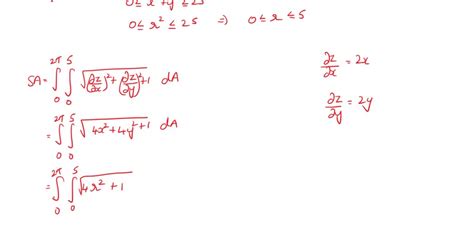 0 ≤ r² ≤ 25 ⇒ 0 ≤ r ≤ 5
SA = ∫₀^2π ∫₀^5 √((∂z/∂x)² + (∂z/∂y)² + 1) dA
∂z/∂x = 2x
∂z/∂y = 2y
= ∫₀^2π ∫₀^5 √(4x² + 4y² + 1) dA
= ∫₀^2π ∫₀^5 √(4r² + 1)